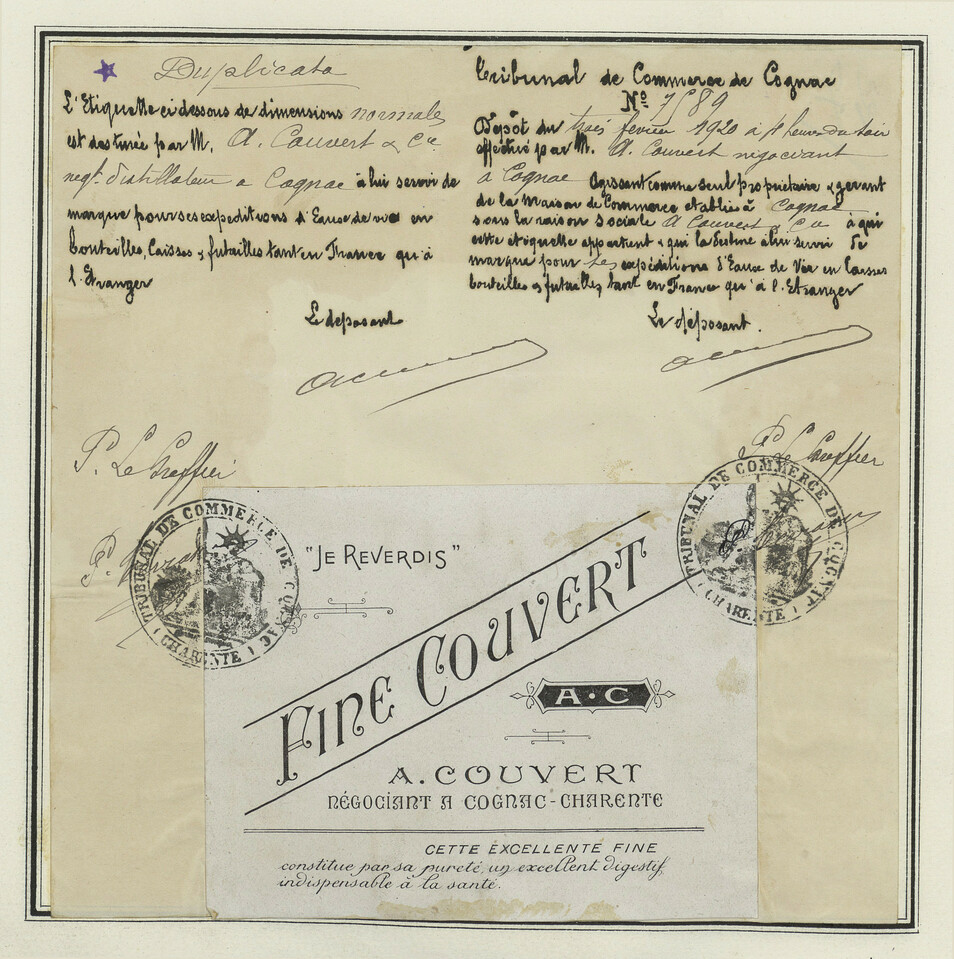 Duplicata
L'Etiquette ci dessous de dimensions normale
est destinée par M. A. Couvert & Cie
negt. distillateur a Cognac à lui servir de
marque pour ses expeditions d'Eaux de vie en
bouteilles, Caisses & futailles tant en France qu'à
l'Etranger
Le deposant
P. Le Greffier
Tribunal de Commerce de Cognac
No 7589
Dépôt du trois février 1920 à heures du soir
effectué par M. A. Couvert négociant
à Cognac Agissant comme seul propriétaire & gérant
de la Maison de Commerce etablie à Cognac
sous la raison sociale A Couvert & Cie à qui
cette étiquette appartient & qui la destine à lui servir de
marque pour ses expéditions d'Eaux de Vie en Caisses
bouteilles & futailles, tant en France qu'à l'Etranger
Le déposant.
P. Le Greffier
TRIBUNAL DE COMMERCE DE COGNAC
(CHARENTE)
TRIBUNAL DE COMMERCE DE COGNAC
(CHARENTE)
"JE REVERDIS"
FINE COUVERT
A·C
A. COUVERT
NÉGOCIANT A COGNAC-CHARENTE
CETTE EXCELLENTE FINE
constitue par sa pureté, un excellent digestif,
indispensable à la santé.